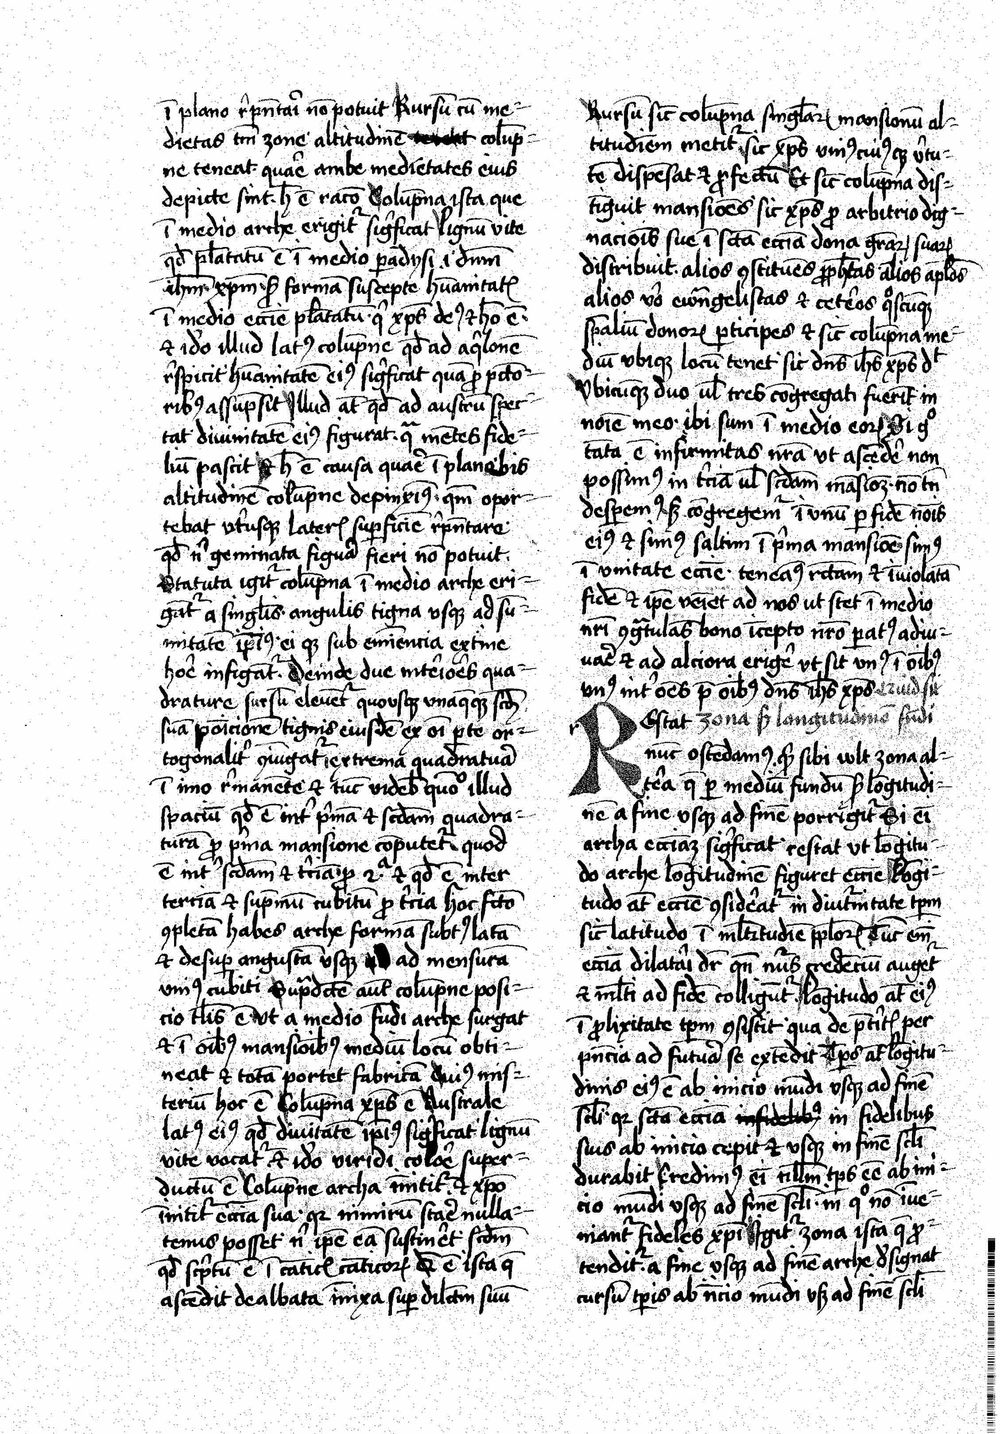 ī plano r̄pn̄tari nō potuit Rursū cū me-
dietas tm̄ zone altitudinē colup̄-
ne teneat quarē ambe medietates eius
depicte sint. h̄ ē racō Colup̄na ista que
ī medio arche erigitᷣ sig̅ficat lignū vite
qd̄ plātatū ē ī medio padysi .i. dn̄m
ihm̄. xpm̄ .s. formā suscepte hūanitatꝭ
ī medio eccīe plātatū. qꝛ xp̄s deꝰ ⁊ hō ē.
⁊ id̄o illud latꝰ colup̄ne qd̄ ad aq̇lonē
r̄spicit hūanitatē eiꝰ sig̅ficat quā ꝓ pctō-
ribꝰ assūpsit Illud at̄ qd̄ ad austrū spec-
tat diuinitatē eiꝰ figurat. qᷓ mētes fide-
liū pascit Et h̄ ē causa quarē ī plano bis
altitudinē colup̄ne depinxiꝰ. qm̄ opor-
tebat vtrusqꝫ laterꝭ suꝑficiē r̄pn̄tare
qd̄ n̄ geminata figurā fieri nō potuit.
Statuta igitᷣ colup̄na ī medio arche eri-
gatᷣ a singlis angulis tigna vsqꝫ ad sū-
mitatē ip̄iꝰ. ei qꝫ sub eminencia extrine
hor̄e infigatᷣ. Deinde due int̄iōēs qua-
drature sursū eleuētᷣ quousqꝫ vnaqqꝫ scd̄m
suā posicionē tignis eiusdē ex oī ꝑte or-
togonalitᷣ ꝯiūgatᷣ extrema quadraturā
ī imo r̄manēte ⁊ tūc videbꝭ quō illud
spaciū qd̄ ē int̄ p̄mā ⁊ scdam̄ quadra-
turā ꝓ p̄ma mansione cōputetᷣ. quod
ē int̄ scdam̄ ⁊ t̄ciā. ꝓ 2ᷓ ⁊ qd̄ ē inter
tercia ⁊ supmū cubitū ꝓ t̄cia hoc fctō
ꝯpletā habes arche formā subtꝰ latā
⁊ desuꝑ angustā vsqꝫ ad mensurā
vniꝰ cubiti Sup̄dcte aut̄ colup̄ne posi-
cio tlis ē vt a medio fūdi arche surgat
⁊ ī oībꝰ mansioībꝰ mediū locū obti-
neat ⁊ totā portet fabricā Cuiꝰ mis-
teriū hoc ē Colup̄na xp̄s ē Australe
latꝰ eiꝰ qd̄ diuītatē ip̄iꝰ sig̅ficat lignū
vite vocatᷣ. ⁊ id̄o viridi colōe super-
ductū ē Colup̄ne archa īnititᷣ. ⁊ xp̄o
īnititᷣ eccīa sua. qꝛ nimirū starē nulla-
tenus posset n̄ ip̄e eā sustinēt scdm̄
qd̄ sc̄ptū ē ī caticꝭ caticoꝝ Q̄ ē ista q̄
ascēdit dealbata īnixa suꝑ dilcm̄ suū
Rursū sic̄ colup̄na singlaꝝ mansionū al-
titudiēm metitᷣ sic xp̄s vniꝰcuiꝰqꝫ v̄tu-
tē dispēsat ⁊ ꝓfectū Et sic̄ colup̄na dis-
tiguit mansiōēs sic xp̄s ꝓ arbitrio dig-
nacioīs sue ī scta eccīa dona graꝝ suaꝝ
distribuit. alios ꝯstituēs ꝓphetas alios aplōs
alios v̄o ewāgelistas ⁊ cetēos qͦscūqꝫ
sp̄aliū donoꝝ ꝑticipes ⁊ sic̄ colup̄na me-
diū vbiqꝫ locū tenet sic dn̄s ih̄s xp̄s dᵗ
Vbicūqꝫ duo ul̄ tres cōgregati fuerīt in
noīe meo. ibi sum ī medio eoꝝ Si gͦ
tāta ē infirmitas nr̄a vt ascēdē non
possimꝰ in t̄ciā ul̄ scdam̄ māsioꝫ. nō tn̄
despemꝰ sꝫ cōgregemᷣ ī vnū ꝑ fidē noīs
eiꝰ ⁊ simꝰ saltim ī p̄ma mansiōe simꝰ
ī vnitate eccīe. teneaꝰ rctam̄ ⁊ īuiolatā
fidē ⁊ ip̄e veīet ad nos ut stet ī medio
nr̄i ꝯgᷓtulās bono īcepto nr̄o ꝑatꝰ adiu-
uarē ⁊ ad alciora erigē vt sit vnꝰ ī oībꝰ
vnꝰ int̄ ōēs p̄ oībꝰ dn̄s ih̄s xp̄s
REstat zona s̄ longitudinē fūdi
nūc ostēdamꝰ. qd̄ sibi vult zona al-
tēa q̄ ꝑ mediū fundū s̄ lōgitudi-
nē a fine vsqꝫ ad finē porrigitᷣ Si eī
archa eccīaꝫ sig̅ficat. restat vt lōgitu-
do arche lōgitudinē figuret eccīe Lōgi-
tudo at̄ eccīe ꝯsidēatᷣ in diutᷣnitate tp̄m
sic̄ latitudo ī mltitudiē pploꝝ Tūc em̄
eccīa dilatari dr̄ qn̄ nūꝰ credēciū augetᷣ
⁊ mlti ad fidē colligūtᷣ. Lōgitudo at̄ eiꝰ
ī ꝓlixitate tp̄m ꝯsistit qua de p̄titꝭ per
pn̄cia ad futura se extēdit Tp̄s at̄ lōgitu-
dinis eiꝰ ē ab inicio mūdi vsqꝫ ad finē
scli. qꝛ scta eccīa in fidelibus
suis ab inicio cepit ⁊ vsqꝫ in finē scli
durabit Credimꝰ eī nllm̄ tp̄s eē ab ini-
cio mūdi vsqꝫ ad finē scli. in qͦ nō īue-
niantᷣ fideles xpī Igitᷣ zona ista q̄ ꝓ-
tenditᷣ. a fine vsqꝫ ad finē arche designat
cursū tp̄is ab īicio mūdi vsqꝫ ad finē scli